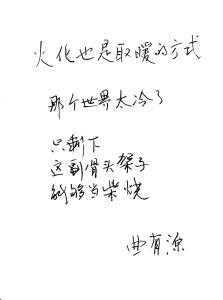 火化也是取暖的方式
那个世界太冷了
只剩下
这副骨头架子
能够当柴烧
曲有源